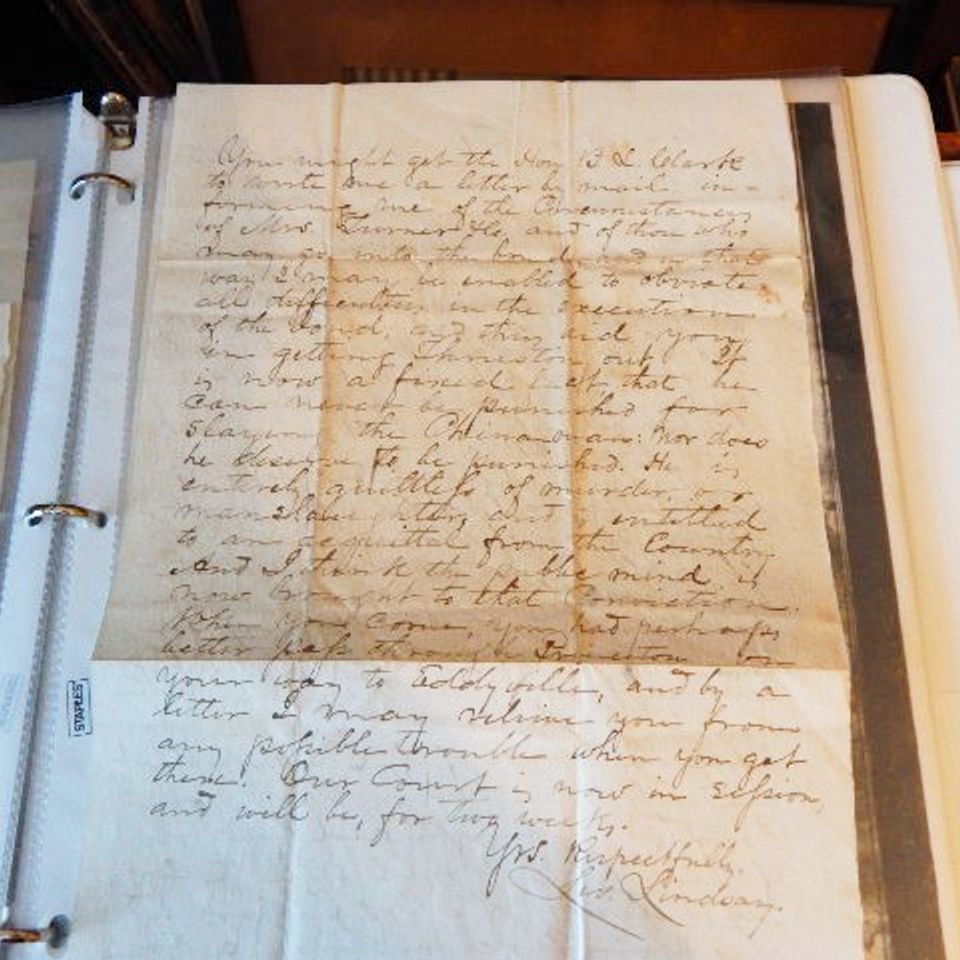 You might get the Hon B L Clarke
to write me a letter by mail, in=
forming me of the Circumstances
of Mrs. Turner &c, and of those who
may go into the bond, and in that
way I may be enabled to obviate
all difficulties in the execution
of the bond, and thus aid you
in getting out. It
is now a fixed fact that he
can never be punished for
slaying the Chinaman: Nor does
he deserve to be punished. He is
entirely guiltless of murder, or
manslaughter, and is entitled
to an acquittal from the Country.
And I think the public mind is
now brought to that Conviction.
When you come, you had perhaps
better pass through on
your way to Eddyville, and by a
letter I may relieve you from
any possible trouble when you get
there. Our Court is now in session,
and will be, for two weeks.
Yrs. Respectfully.
Lindsay.
STAPLES